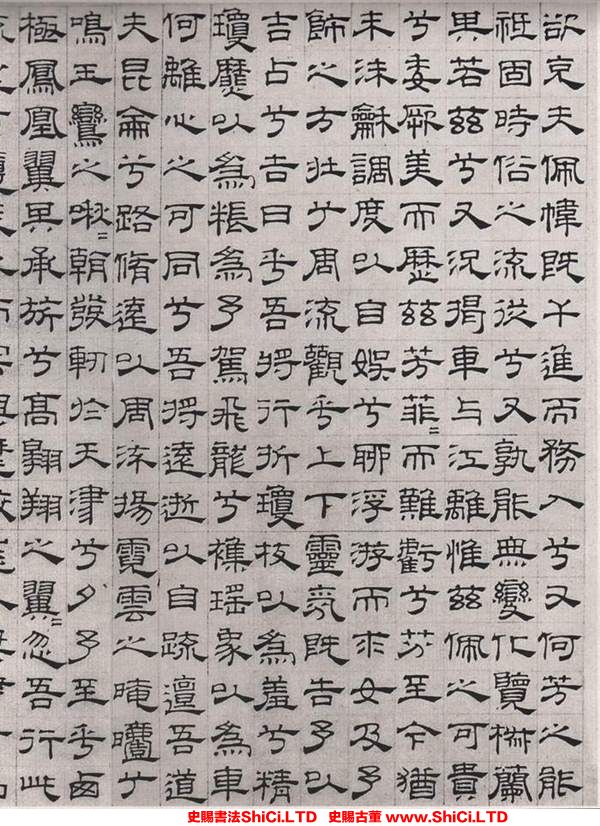 欲充夫佩幃既干進而務入兮又何芳之能
祗固時俗之流從兮又孰能無變化覽椒蘭
其若茲兮又況揭車与江離惟茲佩之可貴
兮委厥美而歷茲芳菲=而難虧兮芬至今猶
未沬龢調度以自娛兮聊浮游而求女及予
飾之方壯兮周流觀乎上下靈氛既告予以
吉占兮吉日乎吾將行折瓊枝以為羞兮精
瓊靡以為粻為予駕飛龍兮雜瑤象以為車
何離心之可同兮吾將遠逝以自疏邅吾道
夫昆侖兮路脩遠以周流揚霓雲之晻兮
鳴玉鸞之啾=朝發軔於天津兮夕予至乎西
極鳳凰翼其承旂兮高翱翔之翼=忽吾行此
史賜書法ShiCi.LTD 史賜古董 www.ShiCi.LTD